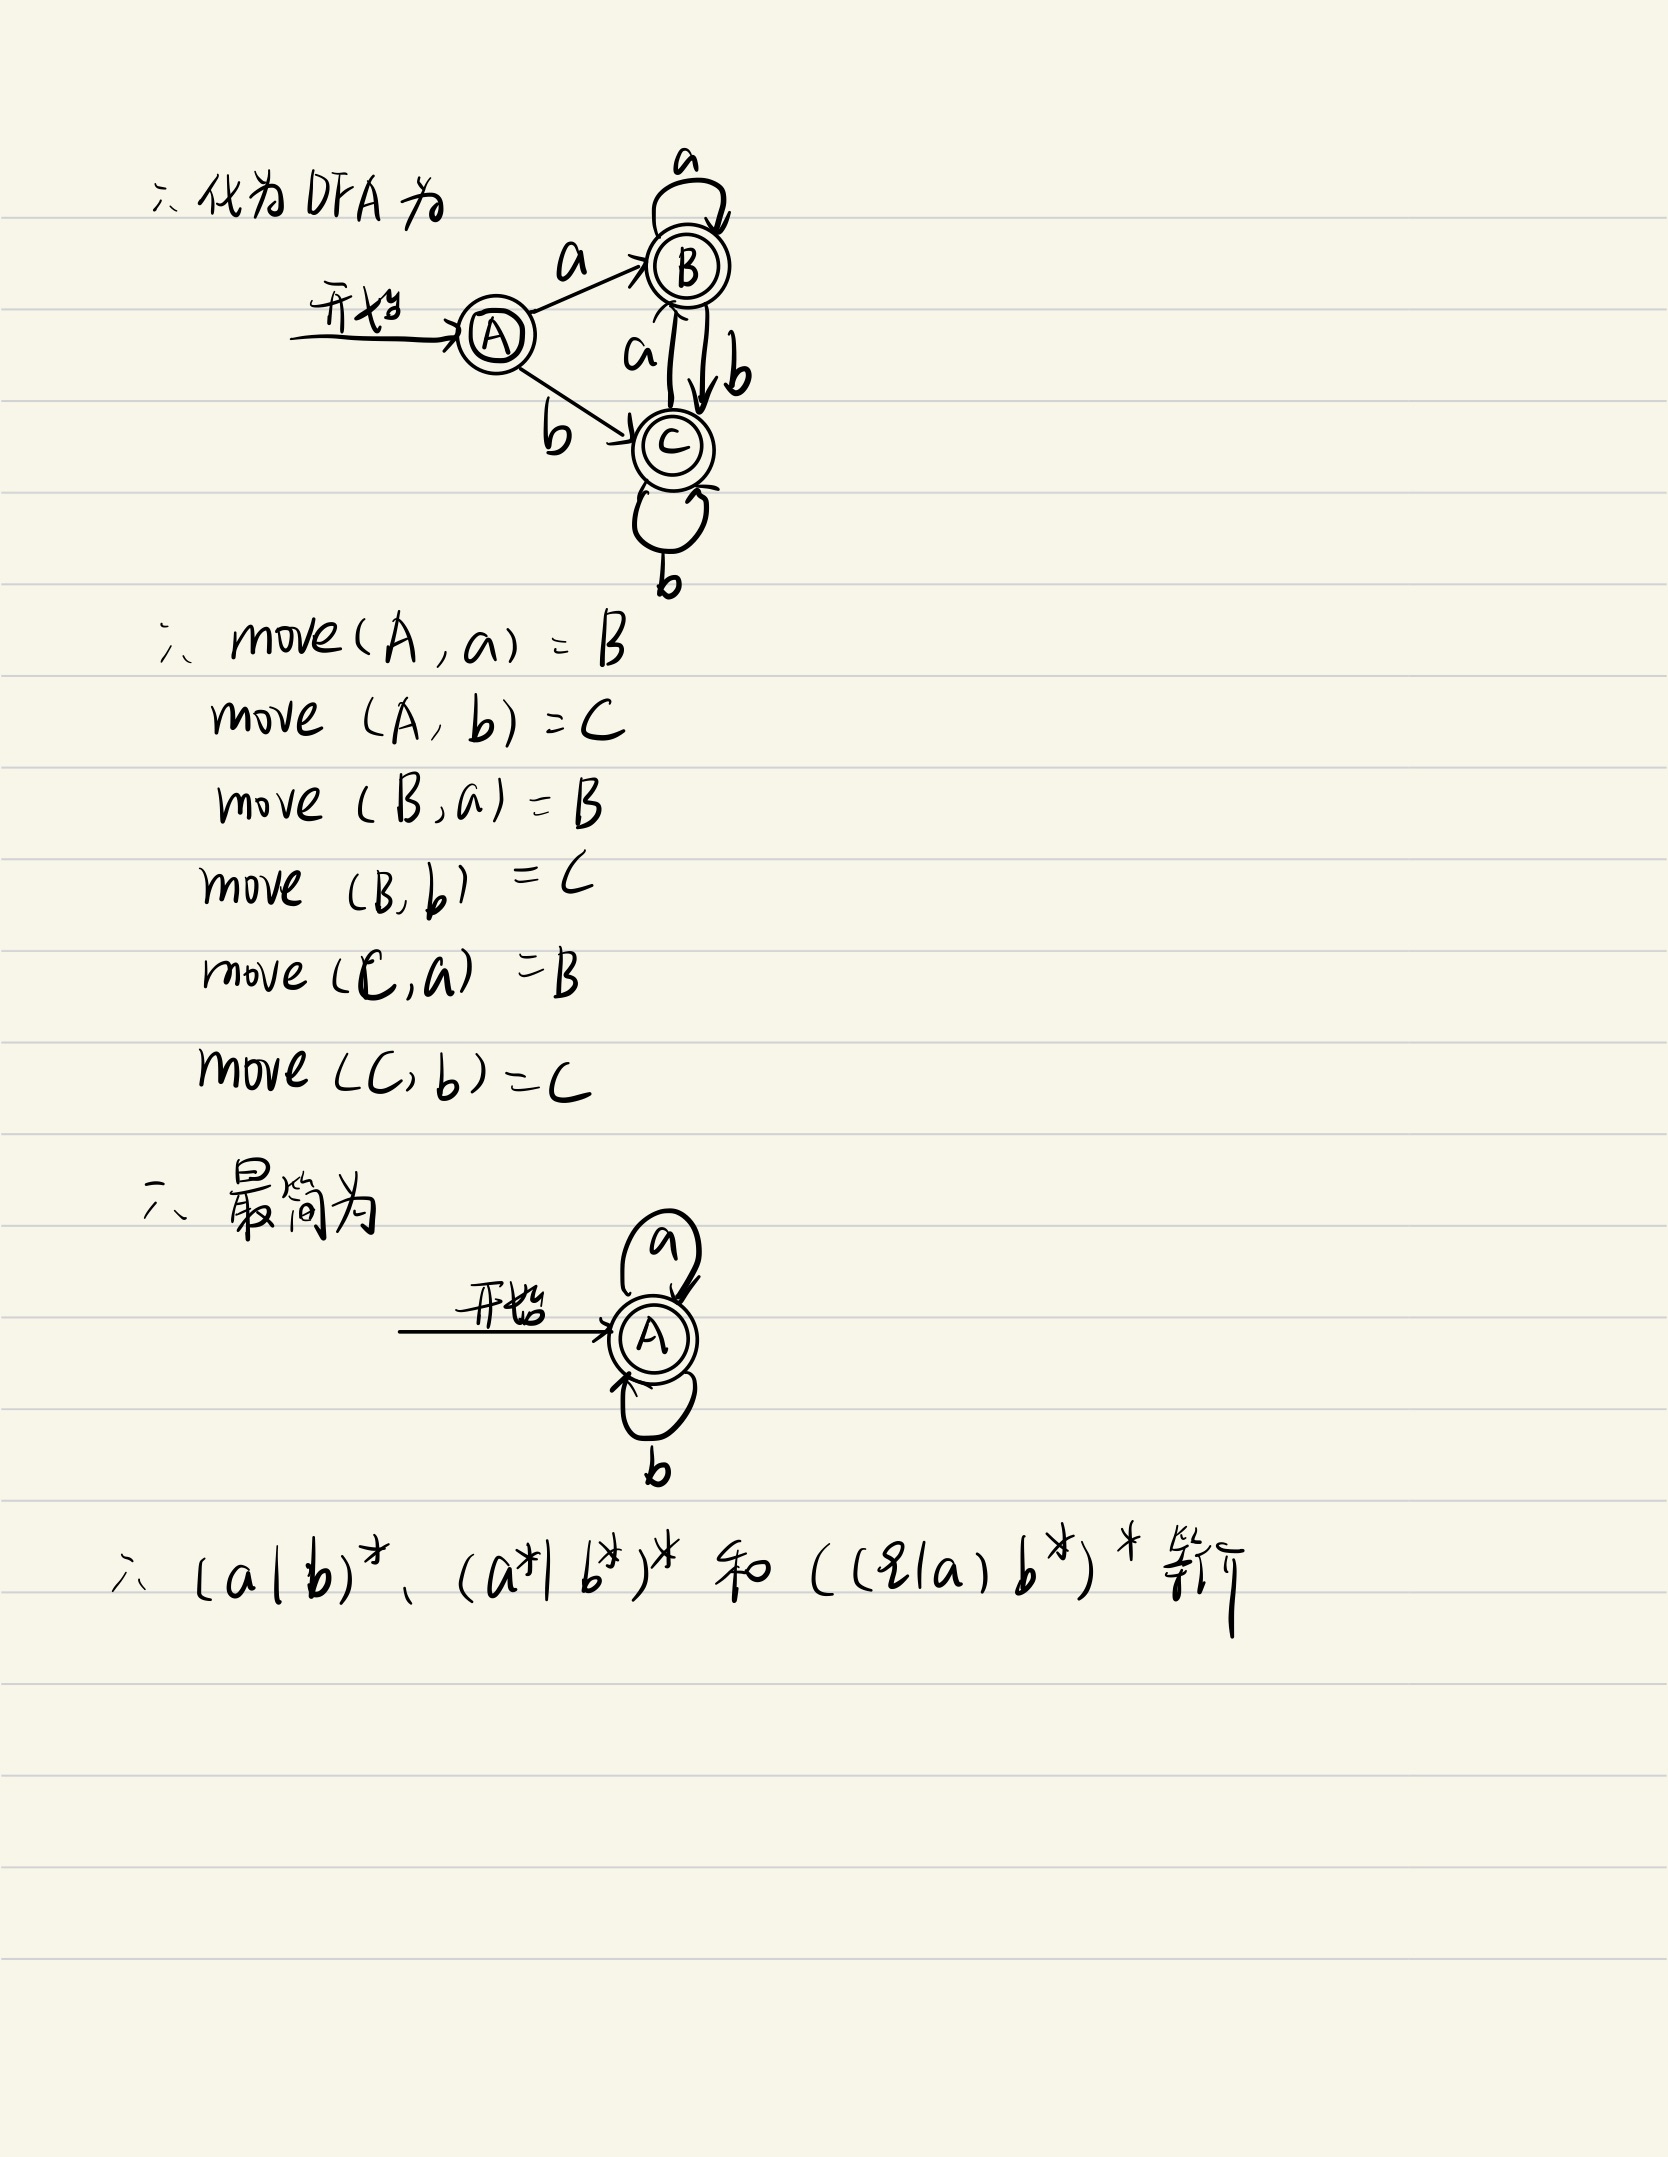 ∴ 化为 DFA 为
a
B
a
开始
A
a
b
b
C
b
∴ move(A, a) = B
move (A, b) = C
move (B, a) = B
move (B, b) = C
move (C, a) = B
move (C, b) = C
∴ 最简为
a
开始
A
b
∴ (a|b)*、(a*|b*)* 和 ((ε|a) b*)* 等价